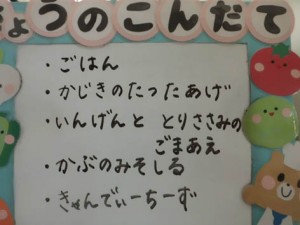 きょうのこんだて
・ごはん
・かじきのたったあげ
・いんげんと とりささみの
ごまあえ
・かぶのみそしる
・きゃんでぃーちーず